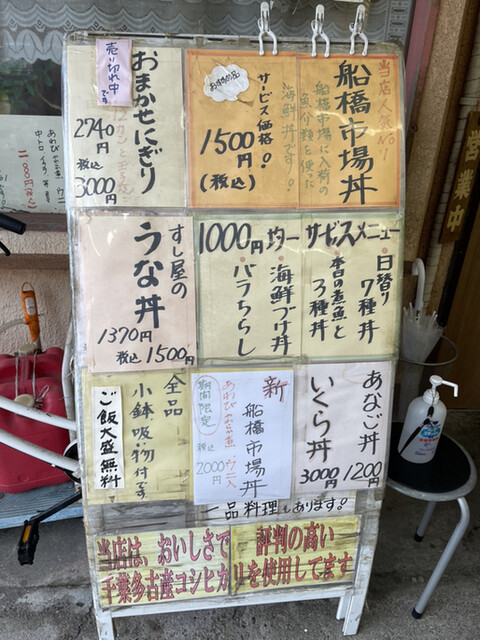 当店人気No.1
船橋市場丼
船橋市場に入荷の
魚介類を使った
海鮮丼です!
おすすめの品
サービス価格!
1500円
(税込)
売り切れ中
です
おまかせにぎり
2740円
税込
3000円
サービスメニュー
・日替り
7種丼
・本日の煮魚と
3種丼
1000円均一
・海鮮づけ丼
・バラちらし
すし屋の
うな丼
1370円
税込 1500円
あなご丼
1200円
いくら丼
3000円
新
船橋市場丼
あわびやわらか煮 ウニ入
期間限定
税込
2000円
全品
小鉢・吸・物付です
ご飯大盛無料
一品料理もあります!
当店は、おいしさで
評判の高い
千葉多古産コシヒカリを使用してます
営業中